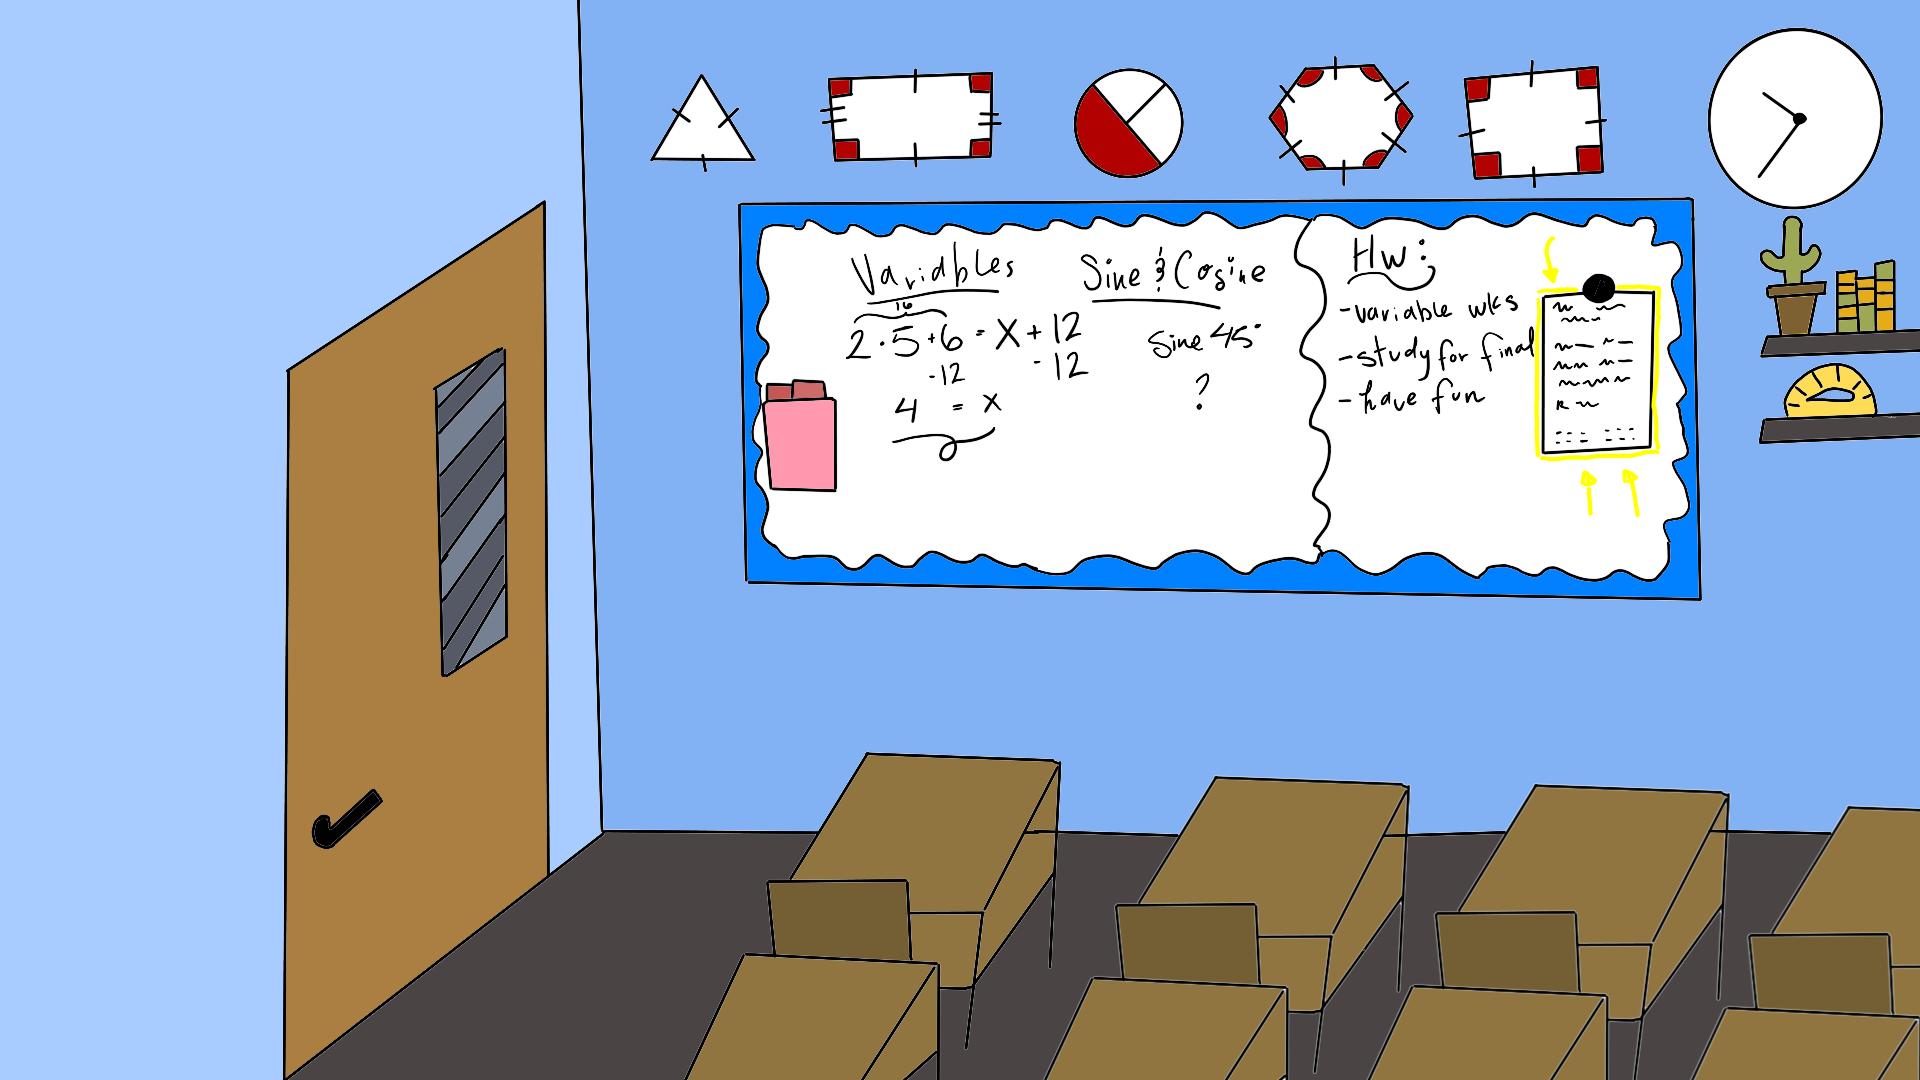 Variables
16
2·5+6 = X + 12
-12 -12
4 = x
Sine & Cosine
Sine 45°
?
Hw:
-variable wks
-study for final
- have fun